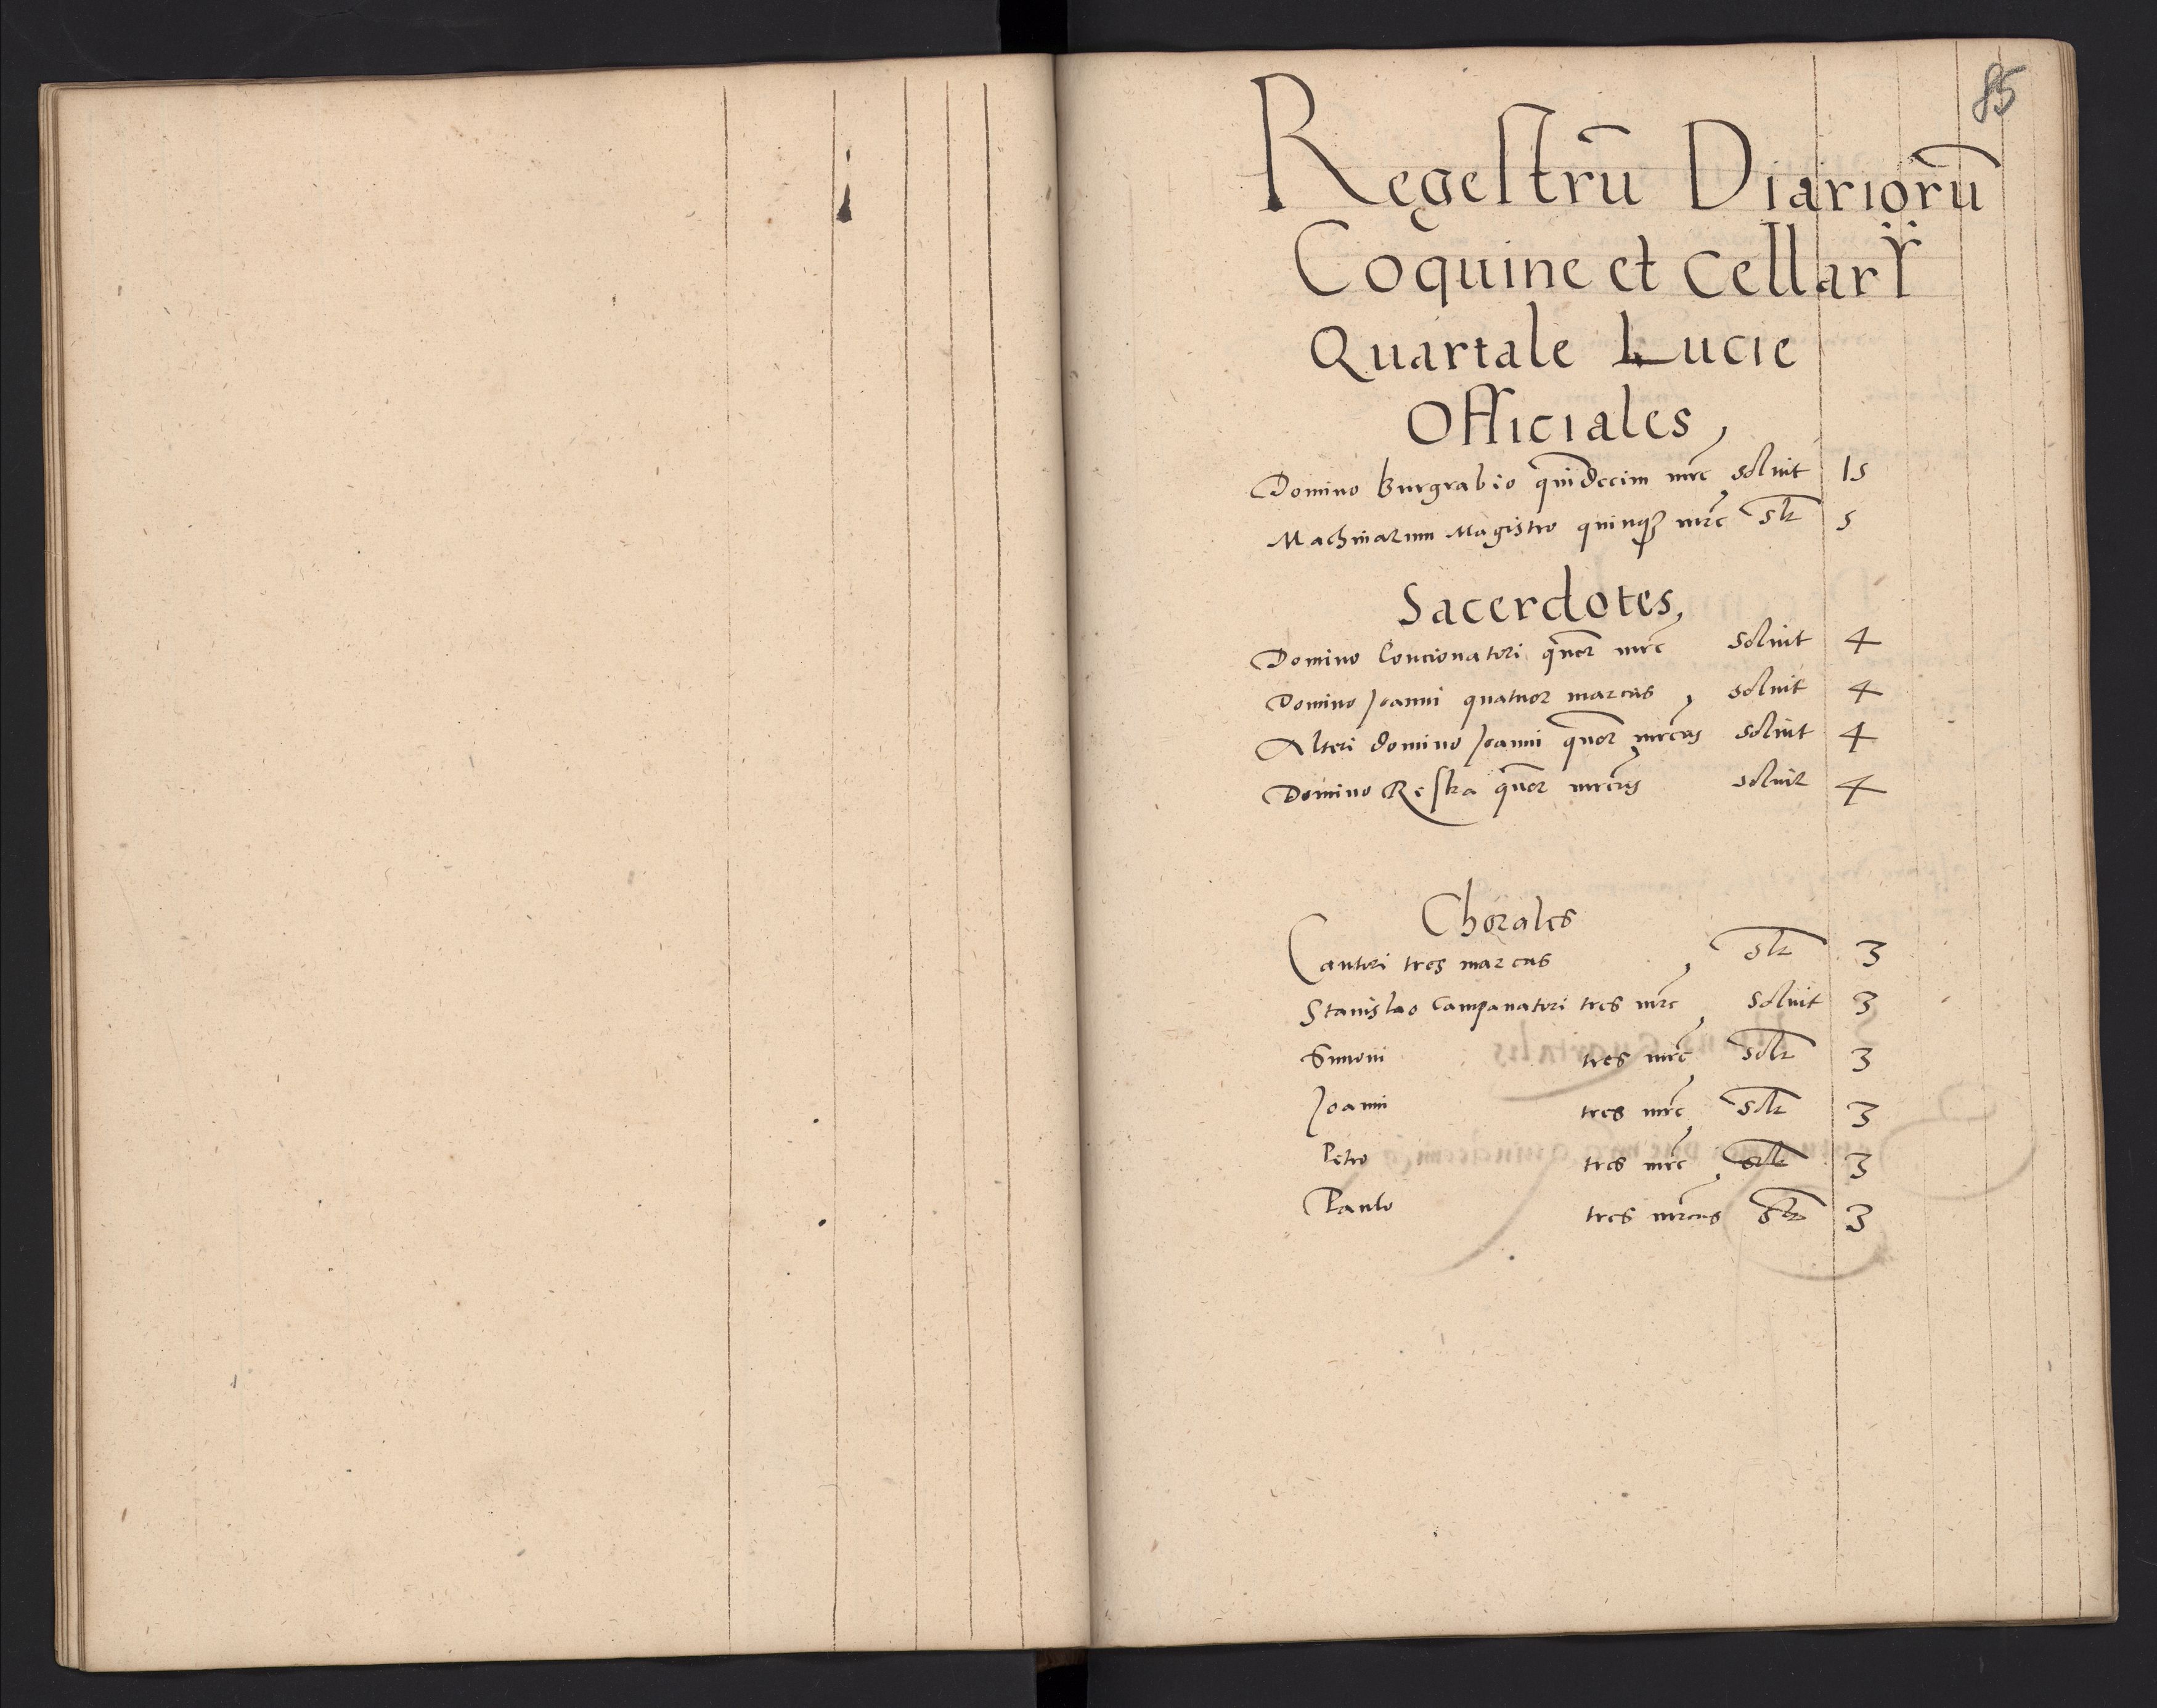 85
Regestrū Diariorū
Coquine et Cellarÿ
Quartale Lucie
Officiales,
Domino Burgrabio quindecim mrc soluit 15
Machinarum Magistro quinqȝ mrc slt 5
Sacerdotes,
Domino Concionatori qūor mrc soluit 4
Domino Joanni quatuor marcas, soluit 4
Alteri domino Joanni qūor mrcas soluit 4
Domino Restka qūor mrcas soluit 4
Chorales
Cantori tres marcas, slt 3
Stanislao Campanatori tres mrc, soluit 3
Simoni tres mrc, solt 3
Joanni tres mrc, solt 3
Petro tres mrc, solt 3
Paulo tres mrcas slt 3